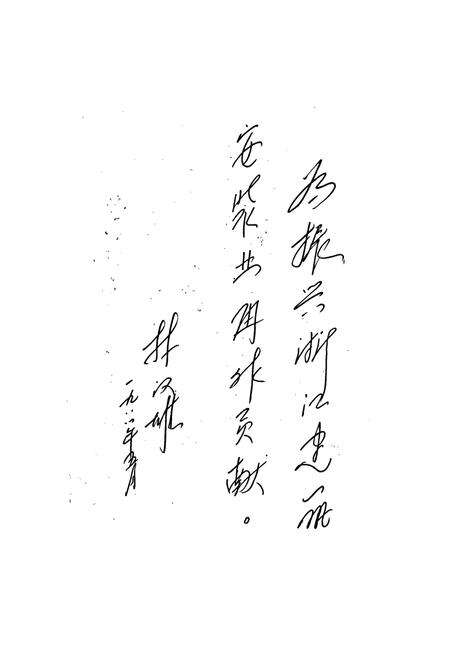 为振兴浙江建筑
安装业再作贡献。
林汉雄
一九八八年五月